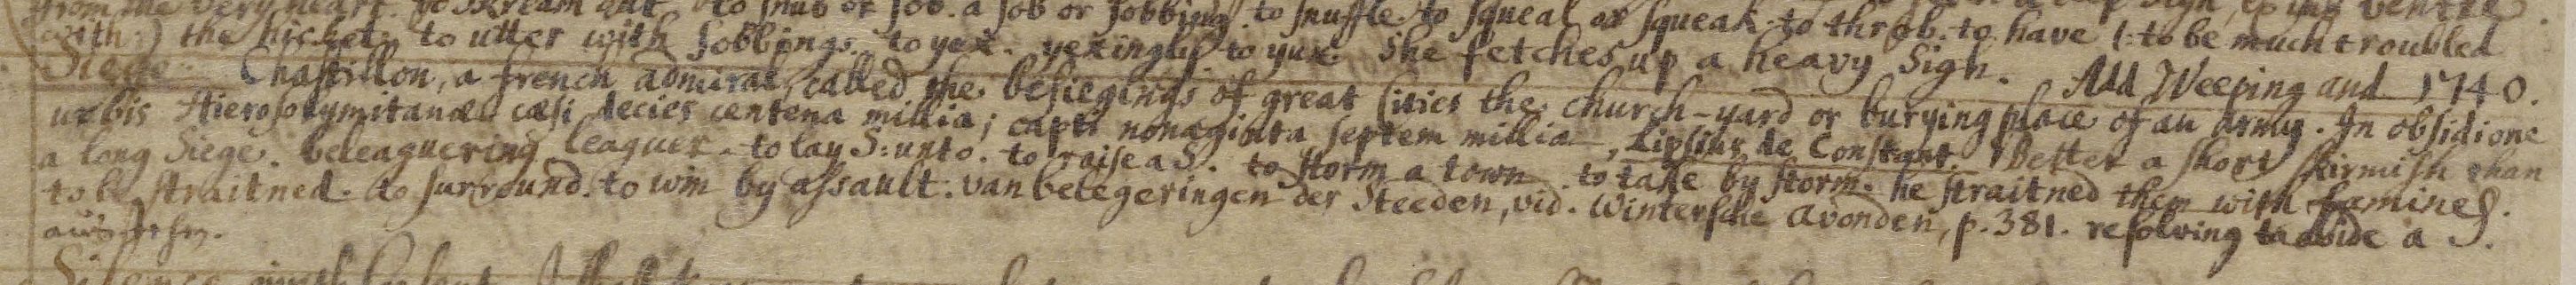 from the very heart. to skream out. to snub or sob. a sob or sobbing. to snuffle to squeal or squeak. to throb. to have (: to be much troubled
with:) the hicket. to utter with sobbings. to yex. yexingly. to yux. She fetches up a heavy Sigh. Add Weeping and 1740.
Siege. Chastillon, a french admiral, called the besiegings of great Cities the church-yard or burying place of an army. In obsidione
urbis Hierosolymitanæ cæsi decies centena millia; capti nonaginta septem millia, Lipsius de Constant. Better a short skirmish than
a long Siege. beleaguering leaguer. to lay S: unto. to raise a S. to storm a town. to take by storm. he straitned them with famine.
to be straitned. to surround. to win by assault. van belegeringen der Steeden, vid. Wintersche Avonden, p. 381. resolving to abide a S.
Silence